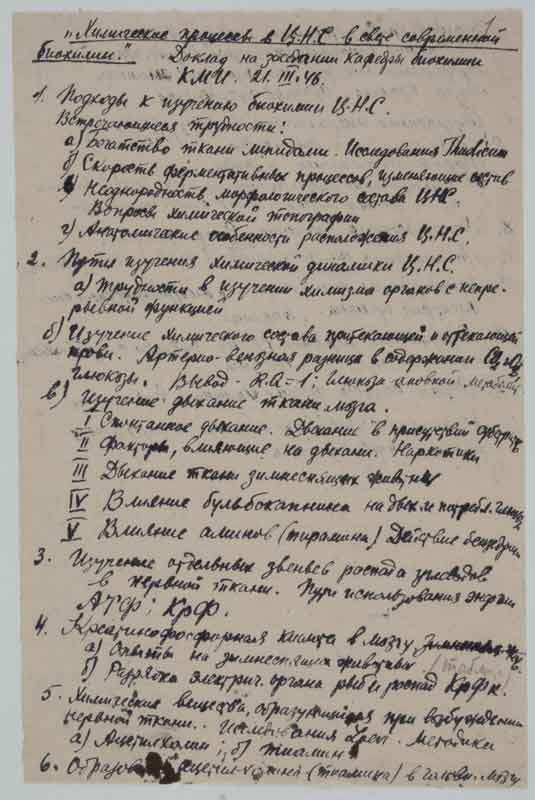 "Химические процессы в Ц.Н.С. в свете современной
биохимии."
Доклад на заседании кафедры биохимии
КМИ. 21.III.46.
1. Подходы к изучению биохимии Ц.Н.С.
Встречающиеся трудности:
а) Богатство ткани липидами. Исследования Thudicum
б) Скорость ферментативных процессов, изменяющие состав
в) Неоднородность морфологического состава ЦНС.
Вопросы химической топографии
г) Анатомические особенности расположения Ц.Н.С.
2. Пути изучения химической динамики Ц.Н.С.
а) Трудности в изучении химизма органов с непре-
рывной функцией
б) Изучение химического состава притекающей и оттекающей
крови. Артерио-венозная разница в содержании
глюкозы. Вывод - R.Q = 1; глюкоза основной
в) Изучение дыхание ткани мозга.
I Спонтанное дыхание. Дыхание в присутствии
II Факторы, влияющие на дыхание. Наркотики
III Дыхание ткани зимнеспящих животных
IV Влияние бульбокапнина на дых. и потребл.
V Влияние аминов (тирамина) Действие
3. Изучение отдельных звеньев распада углеводов
в нервной ткани. Пути использования энергии
АТФ; КрФ.
4. Креатинофосфорная кислота в мозгу
а) Опыты на зимнеспящих животных (таблица)
б) Разрядка электрич. органа рыб и распад КрФк.
5. Химические вещества, образующиеся при возбуждении
нервной ткани. Исследования Методики
а) Ацетилхолин; б) тиамин
6. ацетилхолина (тиамина) в мозгу